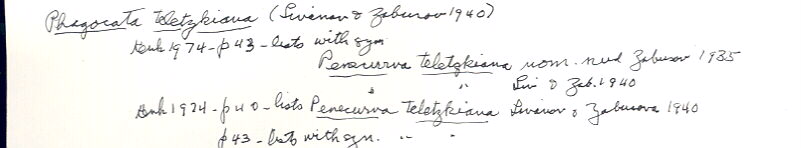 Phagocata teletzkiana (Livanov & Zabusov 1940)
Kenk 1974 - p 43 - lists with syn
Penecurva teletzkiana nom. nud Zabusov 1935
" " Liv & Zab. 1940
Kenk 1974 - p 40 - lists Penecurva teletzkiana Livanov & Zabusova 1940
p 43 - lists with syn. " "